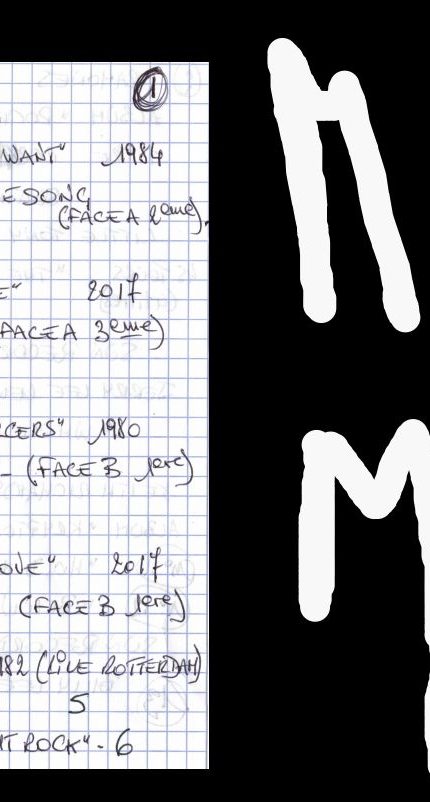 1
WANT" 1984
ESONG
(FACE A 2eme).
E" 2017
3eme)
CERS" 1980
- (FACE B 1ere)
OVE" 2017
(FACE B 1ere)
82 (LIVE ROTTERDAM)
5
T ROCK" - 6